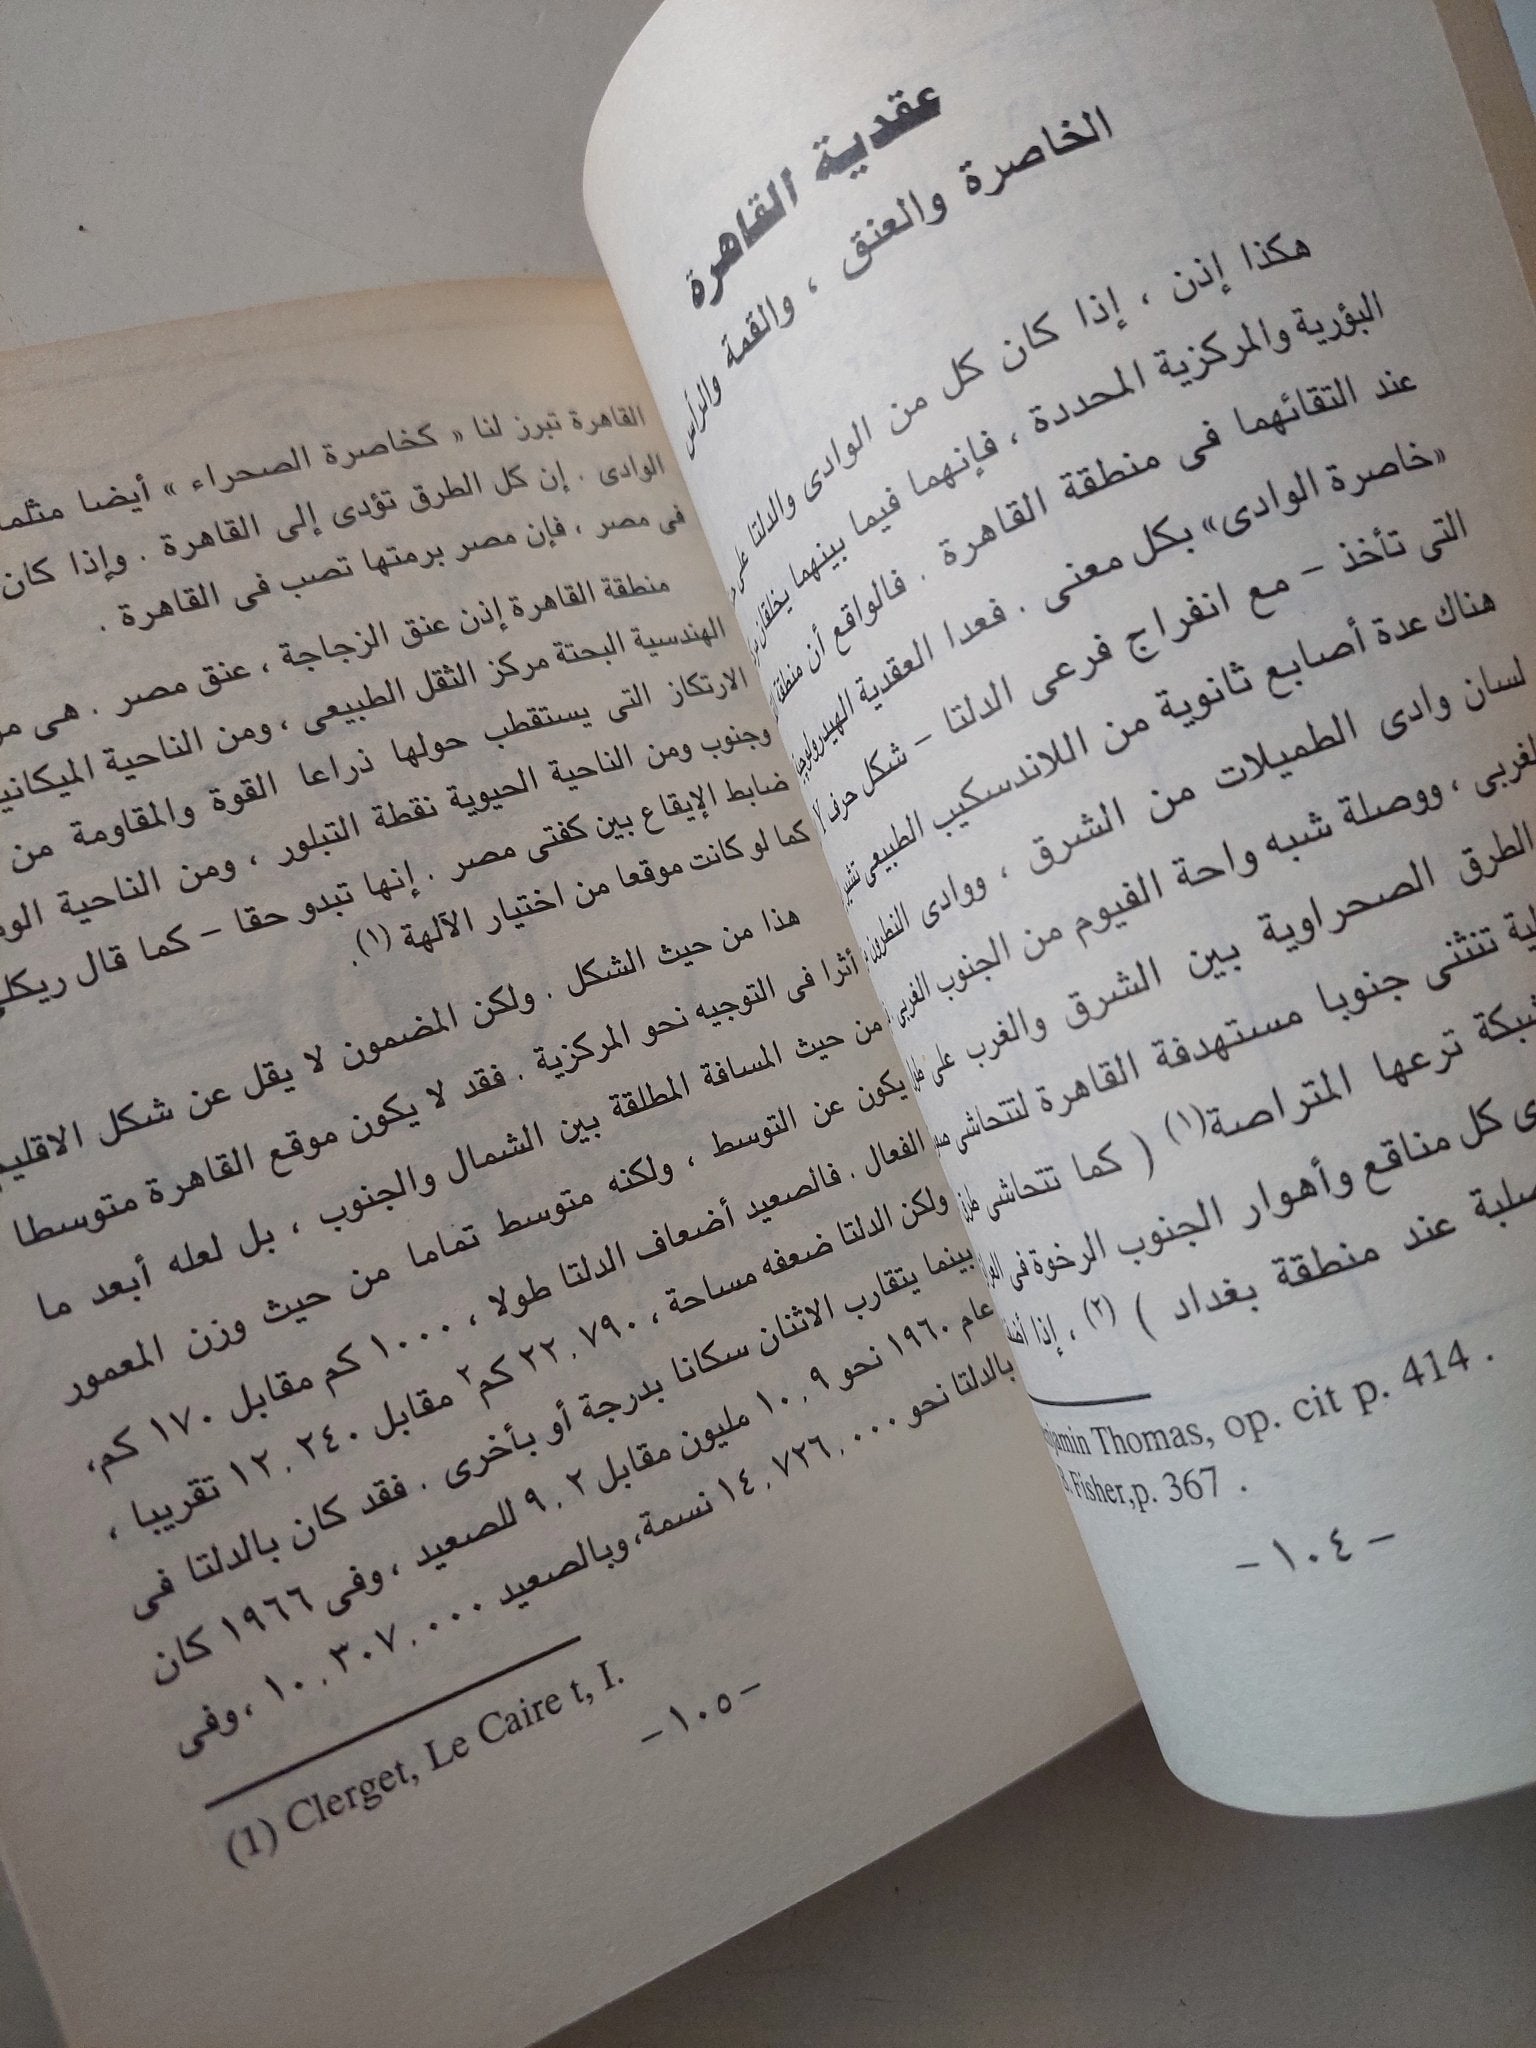 عقدية القاهرة
الخاصرة والعنق ، والقمة والرأس
هكذا إذن ، إذا كان كل من الوادى والدلتا على
البؤرية والمركزية المحددة ، فإنهما فيما بينهما يخلقان
عند التقائهما فى منطقة القاهرة . فالواقع أن منطقة
«خاصرة الوادى» بكل معنى . فعدا العقدية الهيدرولوجية
التى تأخذ – مع انفراج فرعى الدلتا – شكل حرف
هناك عدة أصابع ثانوية من اللاندسكيب الطبيعى تشير
لسان وادى الطميلات من الشرق ، ووادى النطرون
الغربى ، ووصلة شبه واحة الفيوم من الجنوب الغربى
الطرق الصحراوية بين الشرق والغرب على
تنثنى جنوبا مستهدفة القاهرة لتتحاشى
شبكة ترعها المتراصة(١) ( كما تتحاشى طرق
كل مناقع وأهوار الجنوب الرخوة فى
عند منطقة بغداد ) (٢) ، إذا
Thomas, op. cit p. 414 .
Fisher,p. 367 .
– ١٠٤ –
القاهرة تبرز لنا « كخاصرة الصحراء » أيضا مثلما
الوادى . إن كل الطرق تؤدى إلى القاهرة . وإذا كان
فى مصر ، فإن مصر برمتها تصب فى القاهرة .
منطقة القاهرة إذن عنق الزجاجة ، عنق مصر . هى
الهندسية البحتة مركز الثقل الطبيعى ، ومن الناحية الميكانيكية
الارتكاز التى يستقطب حولها ذراعا القوة والمقاومة من
وجنوب ومن الناحية الحيوية نقطة التبلور ، ومن الناحية
ضابط الإيقاع بين كفتى مصر . إنها تبدو حقا – كما قال ريكلى
كما لو كانت موقعا من اختيار الآلهة (١).
هذا من حيث الشكل . ولكن المضمون لا يقل عن شكل الاقليم
أثرا فى التوجيه نحو المركزية . فقد لا يكون موقع القاهرة متوسطا
من حيث المسافة المطلقة بين الشمال والجنوب ، بل لعله أبعد ما
يكون عن التوسط ، ولكنه متوسط تماما من حيث وزن المعمور
الفعال . فالصعيد أضعاف الدلتا طولا ، ١٠٠٠ كم مقابل ١٧٠ كم،
ولكن الدلتا ضعفه مساحة ، ٢٢,٧٩٠ كم٢ مقابل ١٢,٢٤٠ تقريبا ،
بينما يتقارب الاثنان سكانا بدرجة أو بأخرى . فقد كان بالدلتا فى
عام ١٩٦٠ نحو ١٠,٩ مليون مقابل ٩,٢ للصعيد ، وفى ١٩٦٦ كان
بالدلتا نحو ١٤,٧٢٦,٠٠٠ نسمة، وبالصعيد ١٠,٣٠٧,٠٠٠ ، وفى
(1) Clerget, Le Caire t, I.
– ١٠٥ –